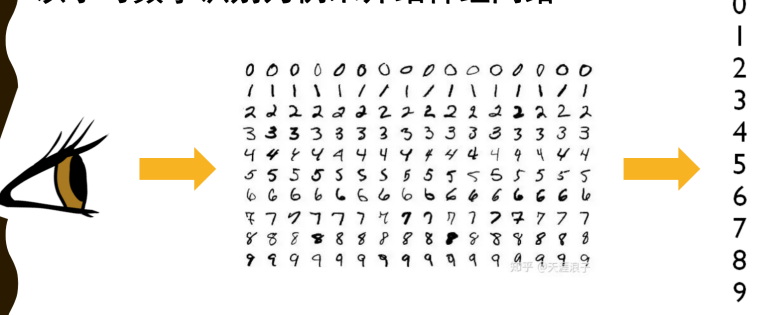 以手写数字识别为例来介绍神经网络
0 0 0 0 0 0 0 0 0 0 0 0 0 0 0 0
1 1 1 1 1 1 1 1 1 1 1 1 1 1 1 1
2 2 2 2 2 2 2 2 2 2 2 2 2 2 2 2
3 3 3 3 3 3 3 3 3 3 3 3 3 3 3 3
4 4 4 4 4 4 4 4 4 4 4 4 4 4 4 4
5 5 5 5 5 5 5 5 5 5 5 5 5 5 5 5
6 6 6 6 6 6 6 6 6 6 6 6 6 6 6 6
7 7 7 7 7 7 7 7 7 7 7 7 7 7 7 7
8 8 8 8 8 8 8 8 8 8 8 8 8 8 8 8
9 9 9 9 9 9 9 9 9 9 9 9 9 9 9 9
知乎
0
1
2
3
4
5
6
7
8
9